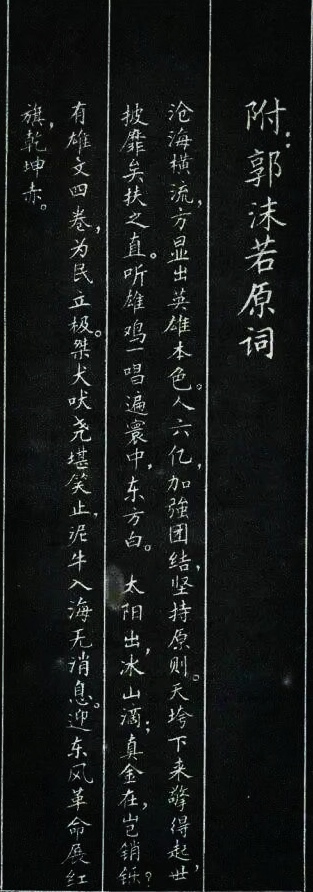 附：郭沫若原词
沧海横流，方显出英雄本色。人六亿，加强团结，坚持原则。天垮下来擎得起，世
披靡矣扶之直。听雄鸡一唱遍寰中，东方白。 太阳出，冰山滴；真金在，岂销铄？
有雄文四卷，为民立极。桀犬吠尧堪笑止，泥牛入海无消息。迎东风革命展红
旗，乾坤赤。